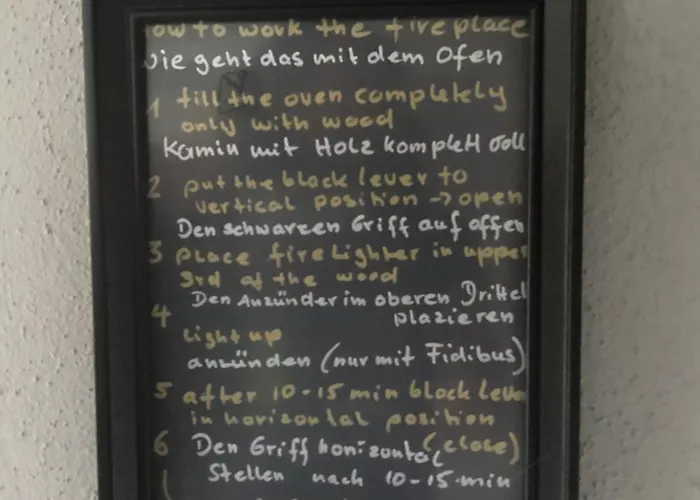 how to work the fireplace
Wie geht das mit dem Ofen
1 fill the oven completely
only with wood
Kamin mit Holz komplett voll
2 put the block lever to
vertical position -> open
Den schwarzen Griff auf offen
3 place firelighter in upper
3rd of the wood
Den Anzünder im oberen Drittel
plazieren
4
light up
anzünden (nur mit Fidibus)
5 after 10-15 min block lever
in horizontal position
6 Den Griff horizontal (close)
Stellen nach 10-15 min